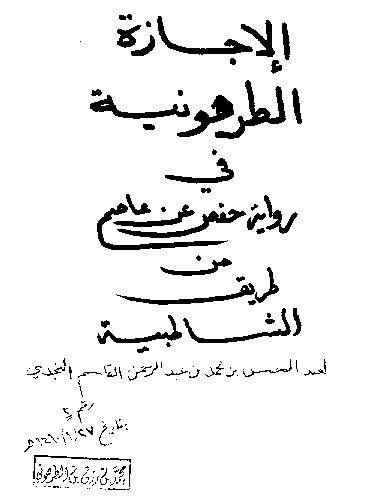 الإجازة
الطرهونية
في
رواية حفص عن عاصم
من
طريق
الشاطبية
لعبد المحسن بن محمد بن عبد الرحمن القاسم النجدي
رقم ٤
بتاريخ
محمد بن رزق بن الطرهوني